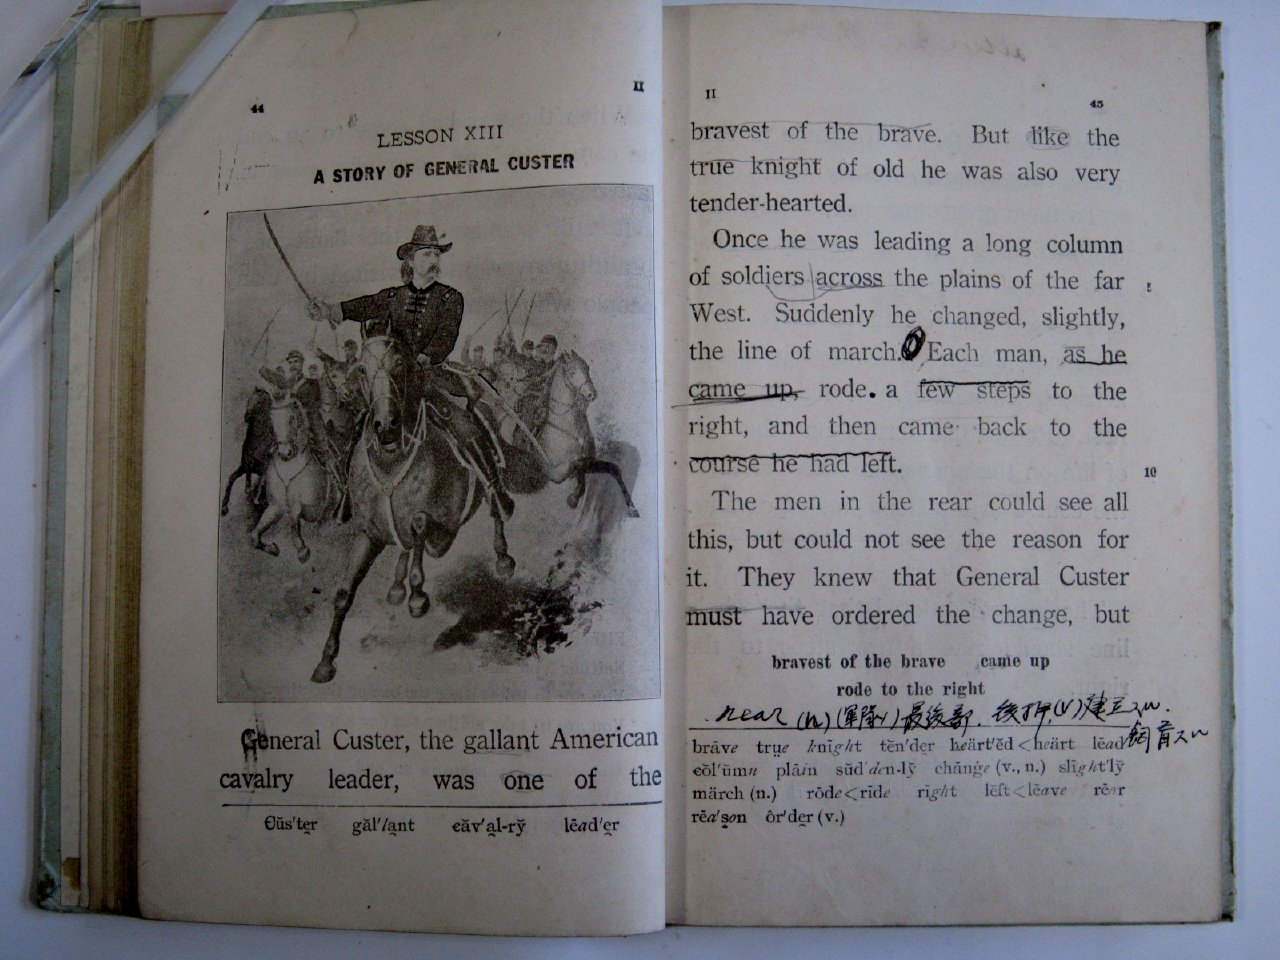 44
II
LESSON XIII
A STORY OF GENERAL CUSTER
General Custer, the gallant American
cavalry leader, was one of the
Cŭs'tẽr găl'lạnt căv'ạl-rў lēad'ẽr
II
45
bravest of the brave. But like the
true knight of old he was also very
tender-hearted.
Once he was leading a long column
of soldiers across the plains of the far
5
West. Suddenly he changed, slightly,
the line of march. Each man, as he
came up, rode a few steps to the
right, and then came back to the
course he had left.
10
The men in the rear could see all
this, but could not see the reason for
it. They knew that General Custer
must have ordered the change, but
bravest of the brave came up
rode to the right
rear (n) (軍隊ノ) 最後部. (v) 建立スル.
飼育スル
brāve trụe knīght tĕn'dẽr heärt'ĕd<heärt lēad
cŏl'ŭmn plāin sŭd'den-lў chānġe (v., n.) slīght'lў
märch (n.) rōde<rīde rīght lĕft<lēave rēar
rēa'ṣon ôr'dẽr (v.)